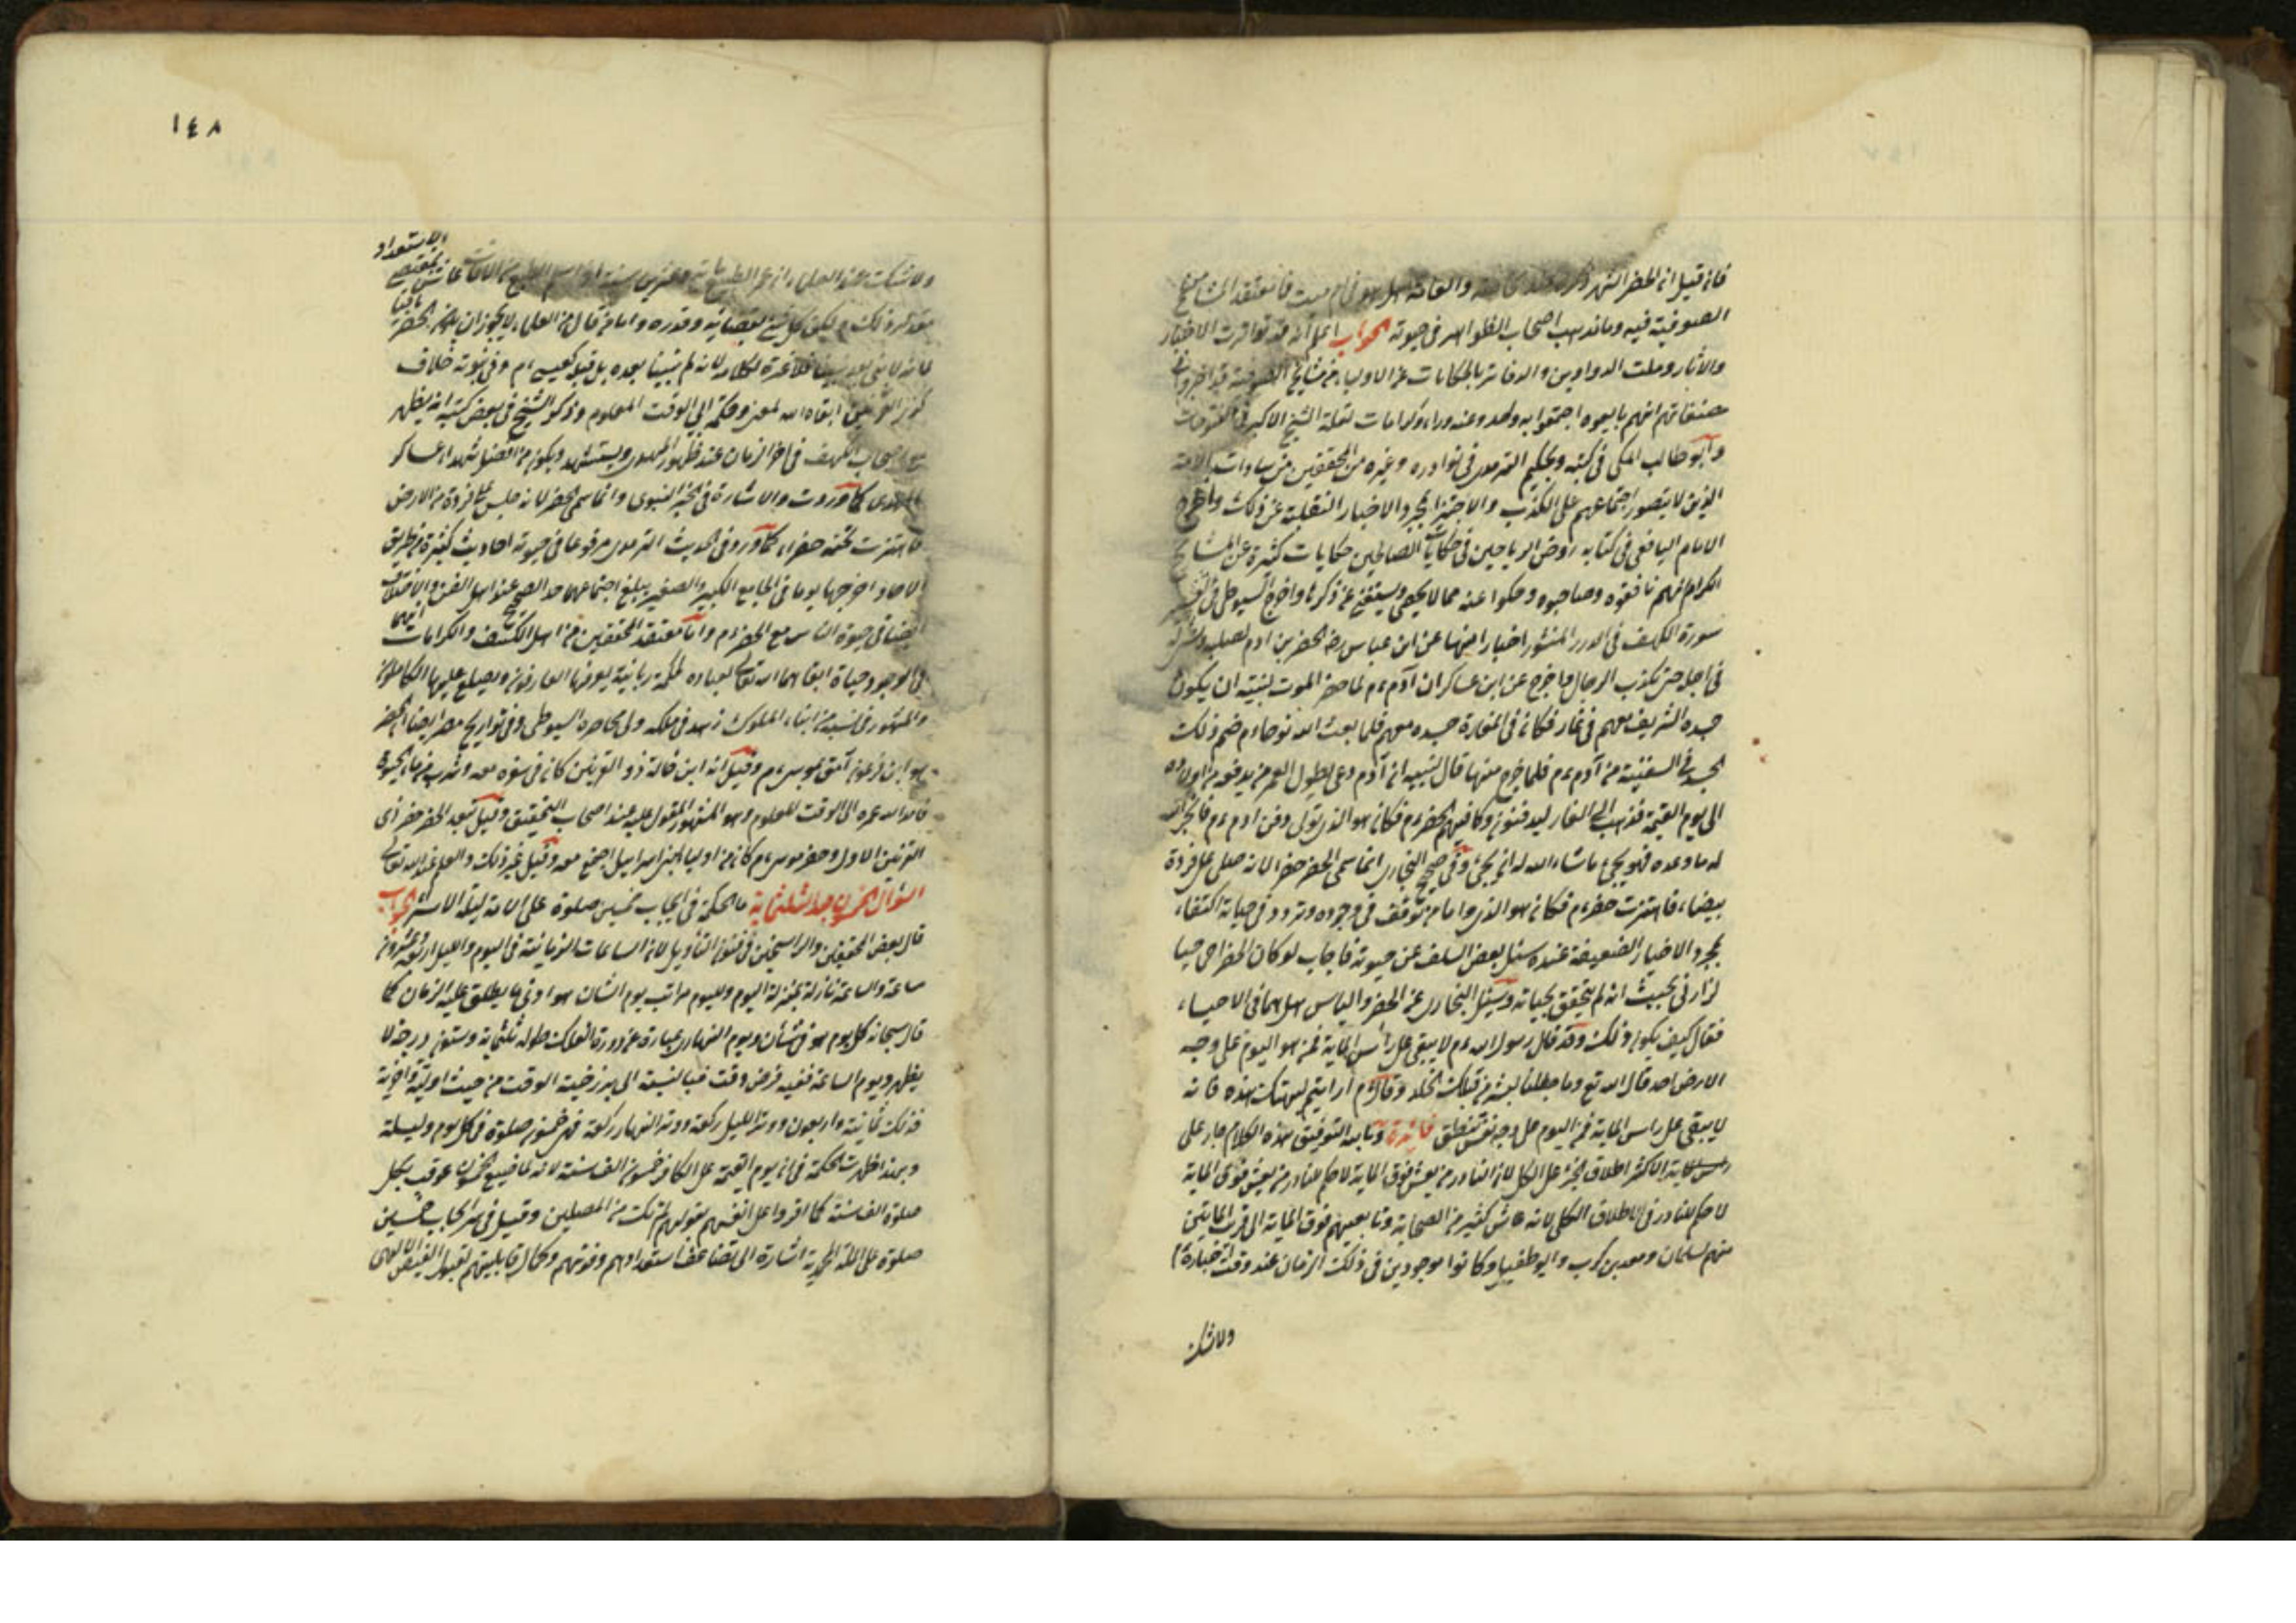 فان قيل ان الخضر اشهر والعامة هل هو ام ميت فما معتقد المشايخ
الصوفية فيه وما مذهب اصحاب الظواهر في حيوته الجواب اعلم انه قد تواترت الاخبار
والاثار وملئت الدواوين والدفاتر بالحكايات عن الاولياء من مشايخ الصوفية
مصنفاتهم انهم اجتمعوا به وكرامات نقله الشيخ الاكبر في الفتوحات
وابو طالب المكي في كتبه وحكيم الترمدي في نوادره وغيره من المحققين من سادات الامة
الذين لا يتصور اجتماعهم على الكذب والاخبار النقلية عن ذلك واخرج
الامام اليافعي في كتابه روض الرياحين في حكايات الصالحين حكايات كثيرة عن المشايخ
الكرام انهم وصاحبوه وحكوا عنه مما لا يحصى ويستغنى عن ذكرها واخرج السيوطي في تفسير
سورة الكهف في الدرر المنثور اخبارا منها عن ابن عباس رضه الخضر بن ادم لصلبه
في اجله حتى يكذب الدجال واخرج عن ابن عساكر ان آدم ءم لما حضر الموت لبنيه ان يكون
جسده الشريف معهم في غار فكان في المغارة جسده معهم فلما بعث الله نوحا ءم ضم ذلك
الجسد في السفينة من آدم ءم فلما خرج منها قال لبنيه ان آدم دعى بطول العمر من يدفنه من اولاده
الى يوم القيمة فذهب الى الغار ليدفنوه وكان فيهم الخضر ءم فكان هو الذي تولى دفن ادم ءم فانجز الله
له ما وعده فهو يحيى ما شاء الله له ان يحيى وفي صحيح البخاري انما سمى الخضر خضرا لانه صلى على فروة
بيضاء فاهتزت خضراء فكان هو الذي واما من توقف في وجوده وتردد في حياته اكتفاء
بمجرد الاخبار الضعيفة عنده سئل بعض السلف عن حيوته فاجاب لو كان الخضر حي حيا
لزارني بحيث انه لم يتحقق بحياته وسئل البخاري عن الخضر والياس هل هما في الاحياء
فقال كيف يكون ذلك وقد قال رسول الله ءم لا يبقى على رأس المائة ممن هو اليوم على وجه
الارض احد قال الله تع وما جعلنا لبشر من قبلك الخلد وقال ءم ارايتم ليلتكم هذه فانه
لا يبقى على راس المائة ممن اليوم على وجه فائدة وبالله التوفيق هذه الكلام جار على
الاكثر اطلاق الجزء على الكل لان النادر من يعيش فوق المائة لا حكم للنادر من يعيش فوق المائة
لا حكم للنادر في الاطلاق الكلي لانه عاش كثير من الصحابة وتابعيهم فوق المائة الى قريب المائتين
منهم سلمان ومعدي كرب وابو طفيل وكانوا موجودين في ذلك الزمان عند وقت اخباره
ولا شك
١٤٨
الاستعداد
ولا شك عند العلماء ان عمر الطبيعي مائة وعشرين سنة
ذلك ليكون كل شيء بقضائه وقدره واما من قال من العلماء لا يجوز ان يكون الخضر باقيا
لانه لا نبي بعد نبينا فلا عبرة لكلامه لانه لم يتنبأ بعده بل قبله كعيسى ءم وفي نبوته خلاف
ابقاه الله لمعنى وحكمة الى الوقت المعلوم وذكر الشيخ في بعض كتبه انه يظهر
مع اصحاب الكهف في اخر الزمان عند ظهور المهدي ويستشهد ويكون من افضل شهداء عساكر
المهدي كما وردت والاشارة في الخبر النبوي وانما سمى الخضر لانه جلس على فروة من الارض
فاهتزت تحته خضراء كما ورد في الحديث الترمدي مرفوعا في حيوته احاديث كثيرة من طريق
الاحاد اخرجها يوما في الجامع الكبير والصغير يبلغ اجتماعها حد الصحيح عند اهل الفن والاختلاف
ايضا في حيوة الياس مع الخضر ءم واما معتقد المحققين من اهل الكشف والكرامات انهما
في الوجود وحياة ابقاهما الله تعالى لعباده لحكمة ربانية يعرفها العارفون ويطلع عليها الكاملون
والمشهور في نسبه من ابناء الملوك زهد في ملكه وفي محاضرة السيوطي وفي تواريخ مصر ايضا الخضر
هو ابن فرعون آمن بموسى ءم وقيل انه ابن خالة ذو القرنين كان في سفره معه وشرب من ماء الحيوة
فامد الله عمره الى الوقت المعلوم وهو المشهور المقول عليه عند اصحاب التحقيق وقيل تعدد الخضر خضر ذي
القرنين الاول وخضر موسى ءم كان من اولياء بني اسرائيل اجتمع معه وقيل غير ذلك والعلم عند الله تعالى
السؤال الخمسون بعد الثلثماية ما الحكمة في ايجاب خمسين صلوة على الامة ليلة الاسراء الجواب
قال بعض المحققين والراسخين في فنون التأويل لان الساعات الزمانية في اليوم والليل اربعة وعشرون
ساعة والساعة نازلة بمنزلة اليوم ولليوم مراتب يوم الشان هو ادنى ما يطلق عليه الزمان كما
قال سبحانه كل يوم هو في شأن ويوم النهاري عبارة عن دورة الفلك طوله ثلثماية وستون درجة لا
يظهر ويوم الساعة ففيه فرض وقت فبالنسبة الى برزخية الوقت من حيث اولية واخرية
فذلك ثمانية واربعون ووتر الليل ركعة ووتر النهار ركعة فهي خمسون صلوة في كل يوم وليلة
وبهذا ظهرت الحكمة في ان يوم القيمة على الكافر خمسون الف سنة لانه لما ضيع الخمسون عوقب بكل
صلوة الف سنة كما اقروا على انفسهم بقولهم لم نك من المصلين وقيل في سر ايجاب خمسين
صلوة على الملة المحمدية اشارة الى تضاعف استعدادهم وقوتهم وكمال قابليتهم لقبول الفيض الالهي